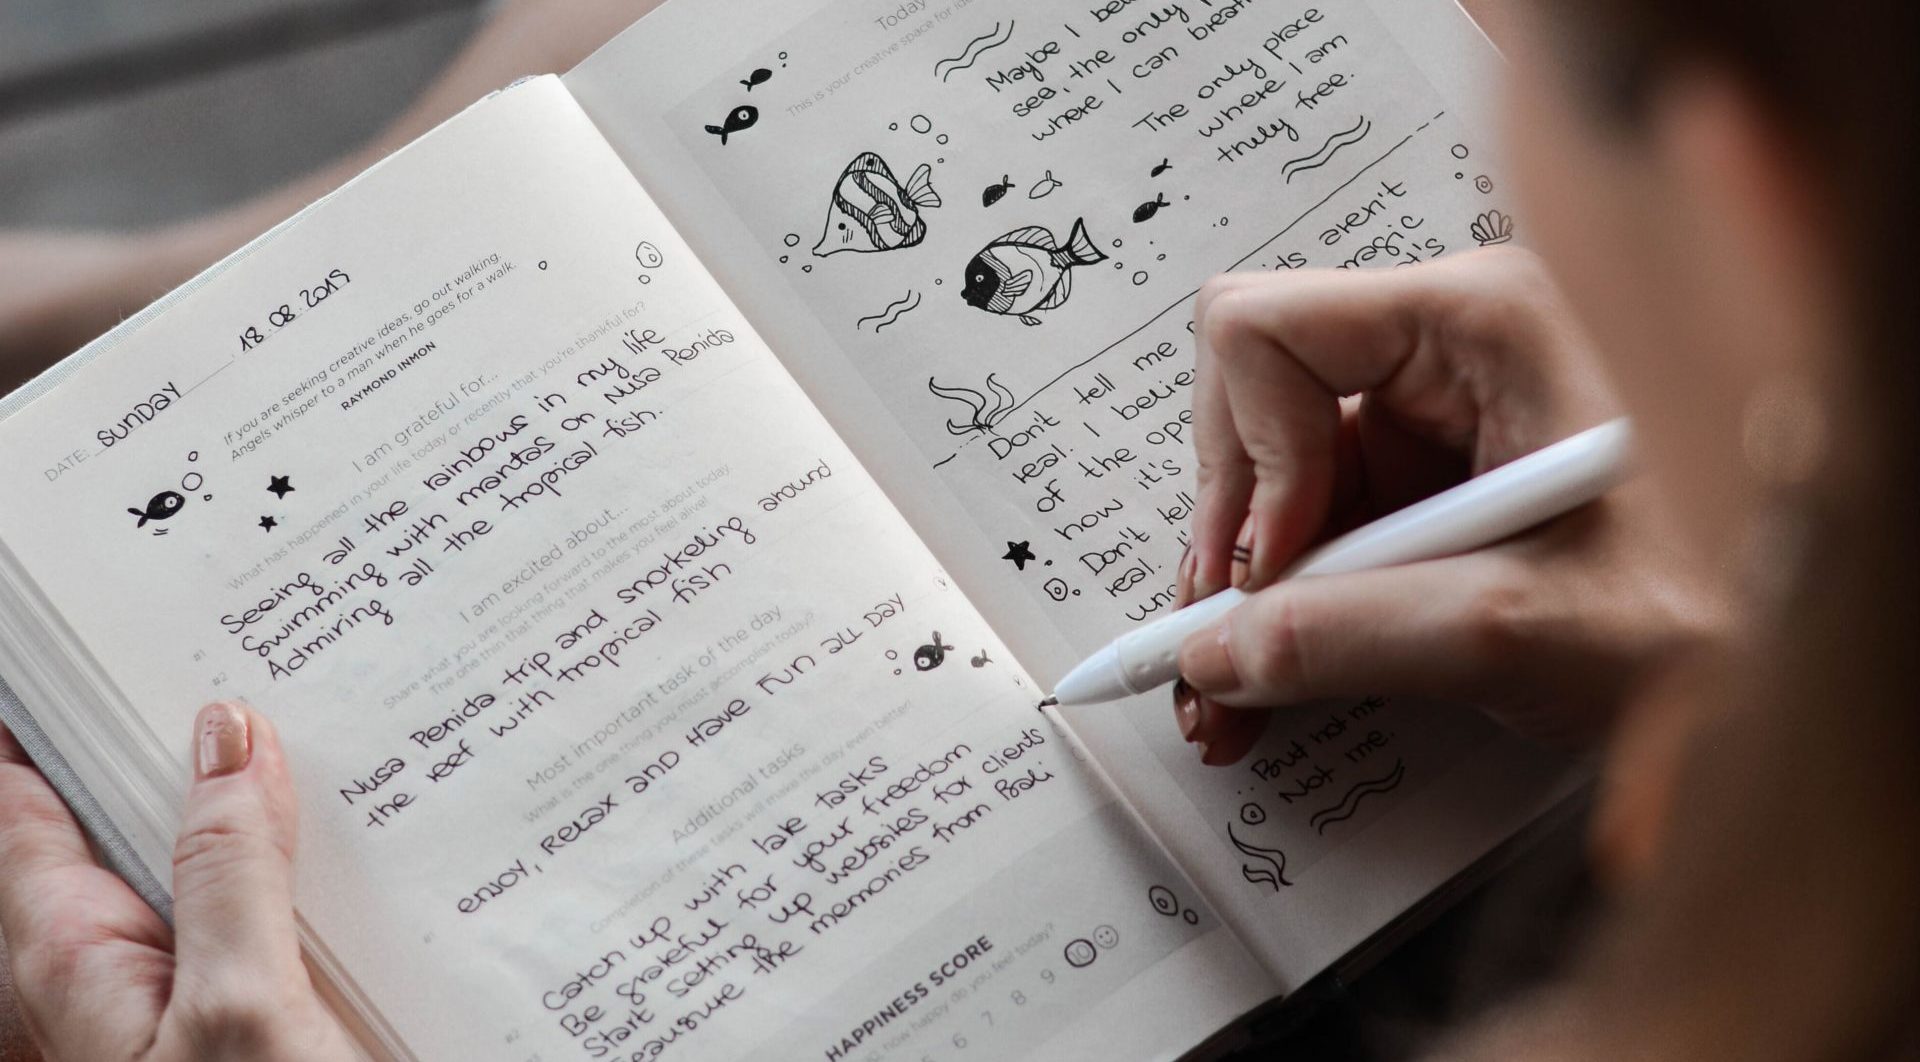 DATE: SUNDAY 18.08.2019
If you are seeking creative ideas, go out walking.
Angels whisper to a man when he goes for a walk.
RAYMOND INMON
I am grateful for...
What has happened in your life today or recently that you're thankful for?
#1 Seeing all the rainbows in my life
#2 Swimming with mantas on Nusa Penida
Admiring all the tropical fish.
I am excited about...
Share what you are looking forward to the most about today.
The one thing that makes you feel alive!
Nusa Penida trip and snorkeling around
the reef with tropical fish
Most important task of the day
What is the one thing you must accomplish today?
ENJOY, RELAX AND HAVE FUN ALL DAY
Additional tasks
Completion of these tasks will make the day even better!
#1 Catch up with late tasks
#2 Be grateful for your freedom
Start setting up websites for clients
the memories from Bali
HAPPINESS SCORE
how happy do you feel today?
6 7 8 9 10
Today
This is your creative space for
Maybe I
sea, the only
where I can
The only place
where I am
truly free.
aren't
magic
Don't tell me
real. I
of the
how it's
Don't tell
real.
But not me.
Not me.